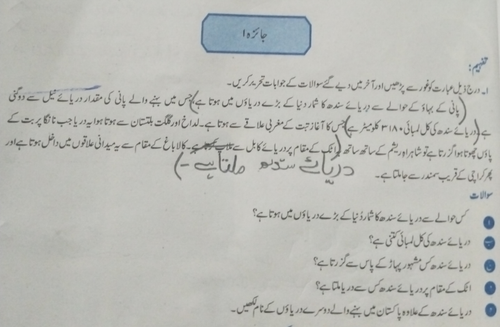 جائزہ ا
تفہیم:
۱۔ درج ذیل عبارت کو غور سے پڑھیں اور آخر میں دیے گئے سوالات کے جوابات تحریر کریں۔
(پانی کے بہاؤ کے حوالے سے دریائے سندھ کا شمار دنیا کے بڑے دریاؤں میں ہوتا ہے) جس میں بہنے والے پانی کی مقدار دریائے نیل سے دوگنی
ہے (دریائے سندھ کی کل لمبائی ۳۱۸۰ کلومیٹر ہے) جس کا آغاز تبت کے مغربی علاقے سے ہوتا ہے۔ لداخ اور گلگت بلتستان سے ہوتا ہوا یہ دریا جب نانگا پربت کے
پاؤں چھوتا ہوا گزرتا ہے تو شاہراہِ ریشم کے ساتھ ساتھ (اٹک کے مقام پر دریائے کابل سے ۔ کالا باغ کے مقام سے یہ میدانی علاقوں میں داخل ہوتا ہے اور
پھر کراچی کے قریب سمندر سے جا ملتا ہے۔ دریائے سندھ ملتا ہے۔)
سوالات
کس حوالے سے دریائے سندھ کا شمار دُنیا کے بڑے دریاؤں میں ہوتا ہے؟
دریائے سندھ کی کل لمبائی کتنی ہے؟
دریائے سندھ کس مشہور پہاڑ کے پاس سے گزرتا ہے؟
اٹک کے مقام پر دریائے سندھ کس سے دریا ملتا ہے؟
دریائے سندھ کے علاوہ پاکستان میں بہنے والے دوسرے دریاؤں کے نام لکھیں۔